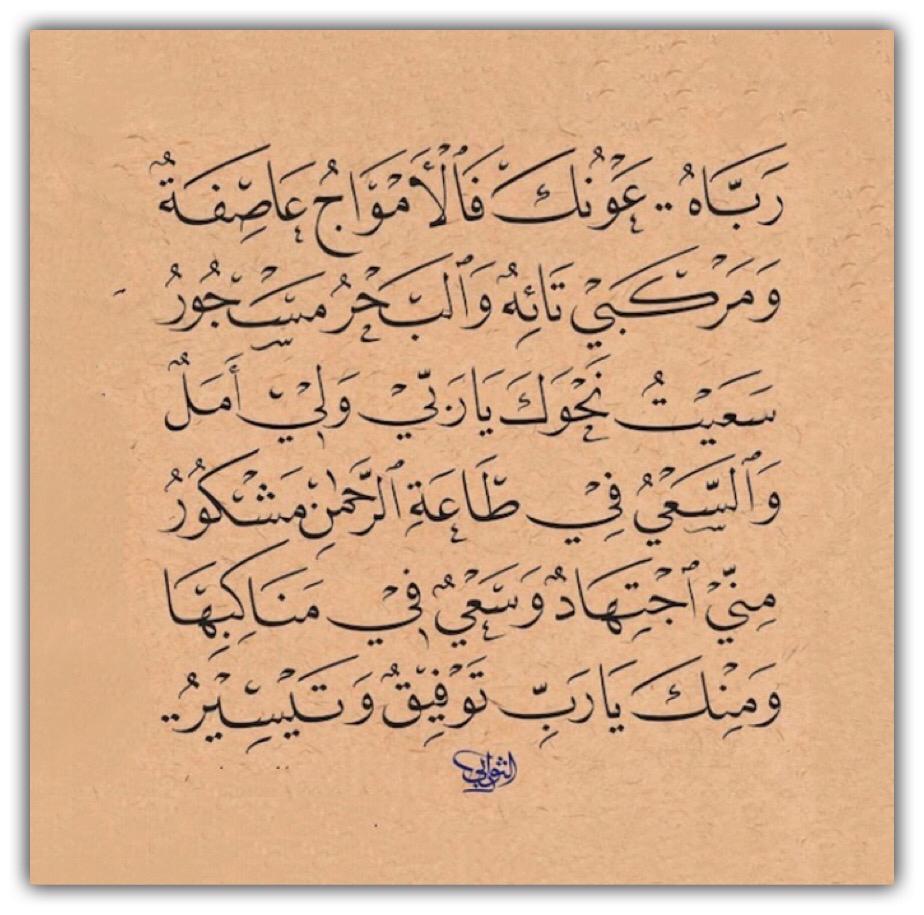 رَبَّاهُ .. عَوْنُكَ فَالْأَمْوَاجُ عَاصِفَةٌ
وَمَرْكَبِيْ تَائِهٌ وَالبَحْرُ مَسْجُورُ
سَعَيْتُ نَحْوَكَ يَا رَبِّيْ وَلِيْ أَمَلٌ
وَالسَّعْيُ فِيْ طَاعَةِ الرَّحْمٰنِ مَشْكُورُ
مِنِّيْ ٱجْتِهَادٌ وَسَعْيٌ فِيْ مَنَاكِبِهَا
وَمِنْكَ يَا رَبِّ تَوْفِيْقٌ وَتَيْسِيْرُ..